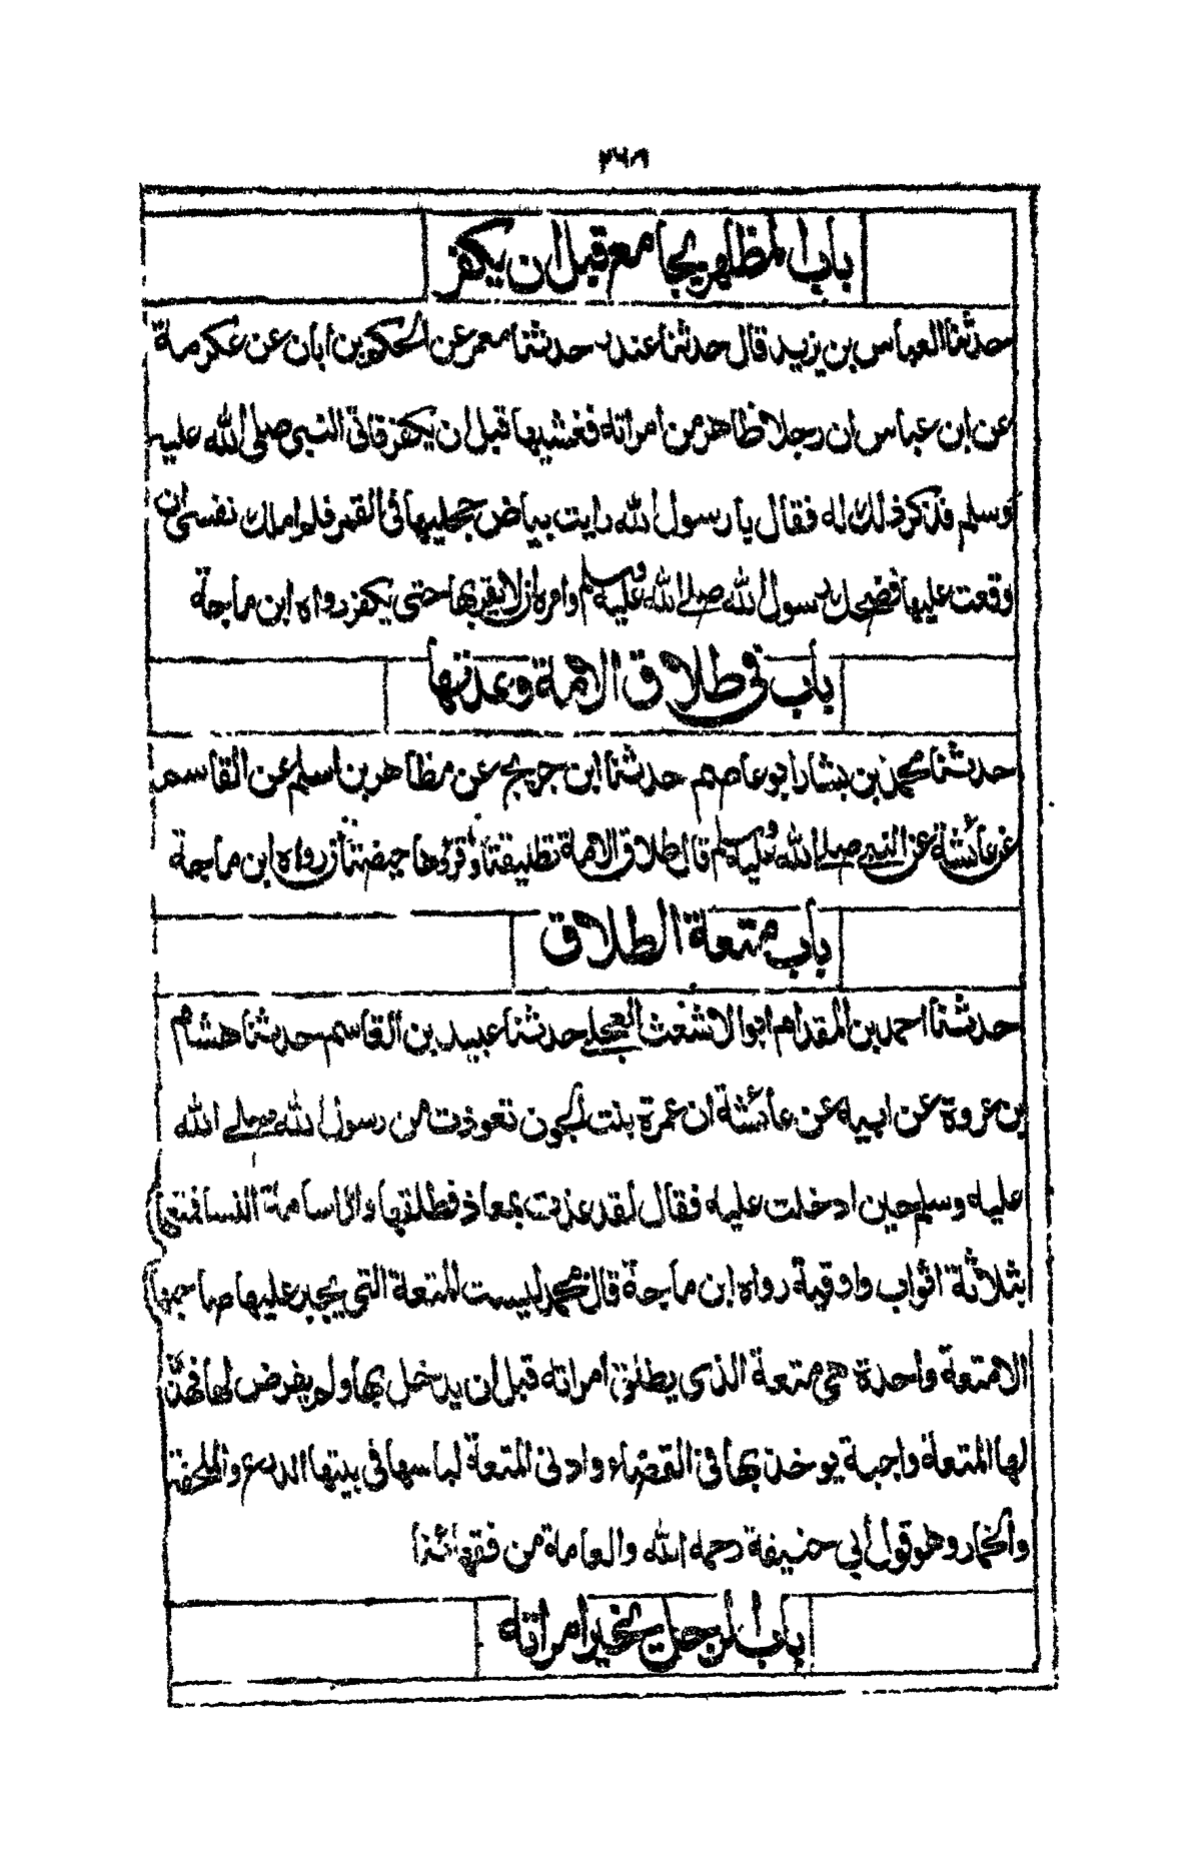 ٢٦٨
باب المظاهر يجامع قبل ان يكفر
حدثنا العباس بن يزيد قال حدثنا غندر حدثنا معمر عن الحكم بن ابان عن عكرمة
عن ابن عباس ان رجلا ظاهر من امراته فغشيها قبل ان يكفر فاتى النبي صلى الله عليه
وسلم فذكر ذلك له فقال يا رسول الله رايت بياض حجليها في القمر فلم املك نفسي ان
وقعت عليها فضحك رسول الله صلے الله عليه وسلم وامره ان لا يقربها حتى يكفر رواه ابن ماجة
باب في طلاق الامة وعدتها
حدثنا محمد بن بشار ابو عاصم حدثنا ابن جريج عن مظاهر بن اسلم عن القاسم
عن عائشة عن النبي صلے الله عليه وسلم قال طلاق الامة تطليقتان وقروها حيضتان رواه ابن ماجة
باب متعة الطلاق
حدثنا احمد بن المقدام ابو الاشعث العجلے حدثنا عبيد بن القاسم حدثنا هشام
بن عروة عن ابيه عن عائشة ان عمرة بنت الجون تعوذت من رسول الله صلے الله
عليه وسلم حين ادخلت عليه فقال لقد عذت بمعاذ فطلقها وامر اسامة او انسا فمتعها
بثلاثة اثواب رازقية رواه ابن ماجة قال محمد ليست المتعة التي يجبر عليها صاحبها
الا متعة واحدة هي متعة الذي يطلق امراته قبل ان يدخل بها ولم يفرض لها فهذه
لها المتعة واجبة يوخذ بها في القضاء وادنى المتعة لباسها في بيتها الدرع والملحفة
والخمار وهو قول أبي حنيفة رحمه الله والعامة من فقهائنا
باب الرجل يخير امراته